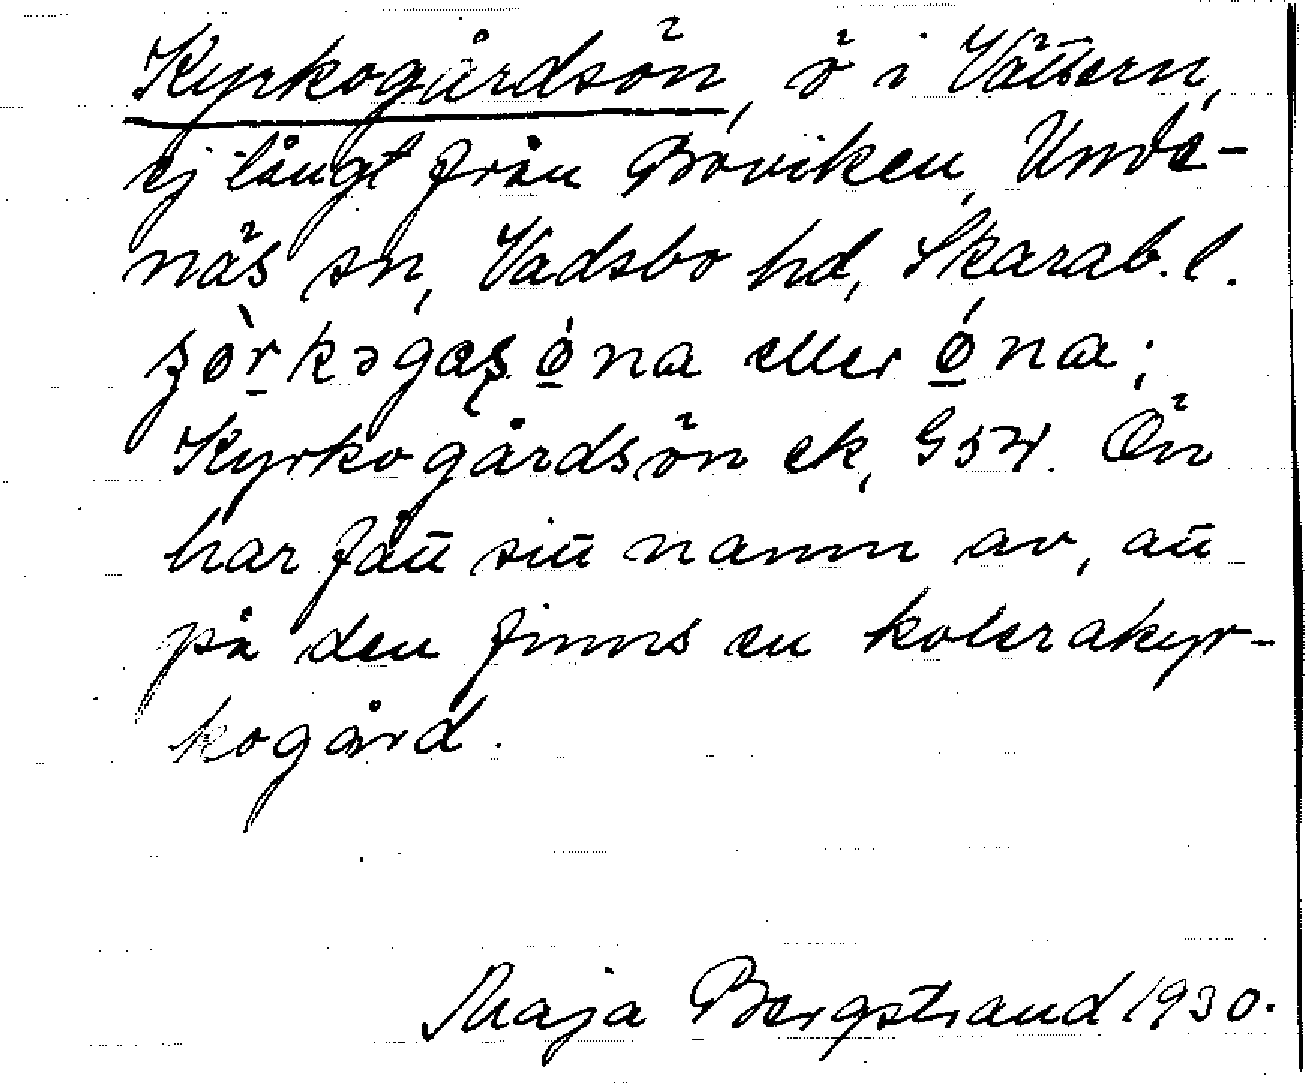 Kyrkogårdsön, ö i Vättern,
ej långt från Boviken, Unde-
näs sn, Vadsbo hd, Skarab. l.
eller
Kyrkogårdsön ek, G54. Ön
har fått sitt namn av, att
på den finns en kolerakyr-
kogård.
Maja Bergstrand 1930.